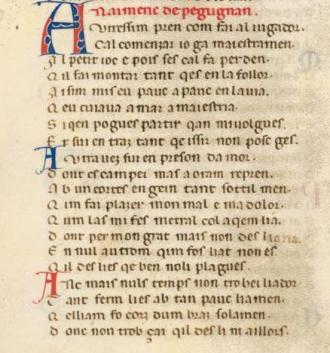 Naimeric de pegugnan.
Atressim pren com fai al iugador.
Cal comenzar ioga maiestramen.
Al petit ioc e pois ses cal fa perden.
Qil fai montar tant qes en la follor.
Aisim mis eu pauc a panc en la uia.
Qeu cuiaua amar a maiestria.
Siqen pogues partir qan mi uolgues.
E sui en traz tant qe issir non posc ges.
Autra uez sui en preson damor.
Dont escampei mas aoram repren.
Ab un cortes engein tant sottil men.
Qim fai plazer mon mal e ma dolor.
Qum las mi fes metral col aqem lia.
Dont per mon grat mais non des
E nul autrom qim fos liat non es
Qil des lies qe ben noli plagues.
Anc mais nuls temps non trobei liador
Tant ferm lies ab tan pauc liamen.
Qel liam fo corz dum brai solamen.
Donc non trob çai qil desli ni aillors.